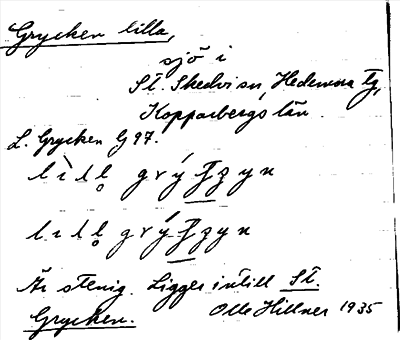 Grycken lilla,
sjö i
St. Skedvi sn, Hedemora tg,
Kopparbergs län.
L. Grycken G 97.
Är stenig. Ligger intill St.
Grycken. Olle Hillner 1935